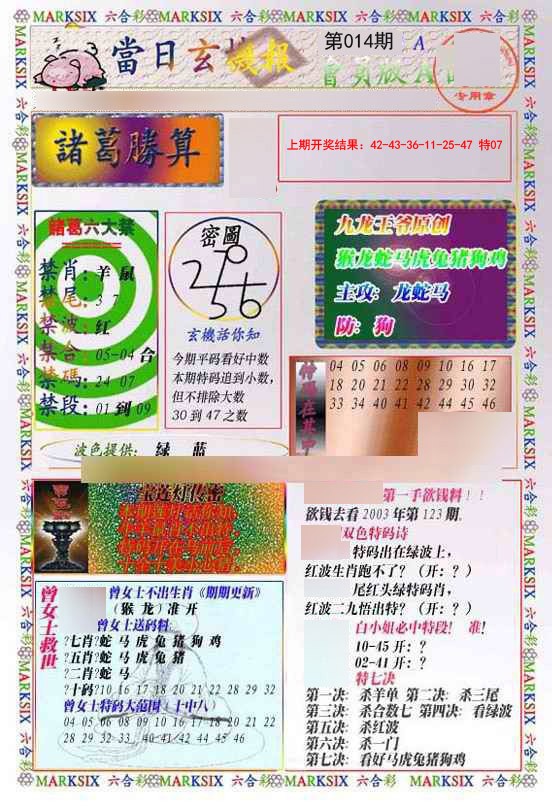 MARKSIX 六合彩 MARKSIX 六合彩 MARKSIX 六合彩 MARKSIX 六合彩
當日玄機報
第014期 A
會員版A
专用章
諸葛勝算
上期开奖结果: 42-43-36-11-25-47 特07
諸葛六大禁
禁肖: 羊 鼠
禁尾: 3 7
禁波: 红
禁合: 05-04 合
禁碼: 24 07
禁段: 01 到 09
密圖
玄機話你知
今期平码看好中数
本期特码追到小数,
但不排除大数
30 到 47 之数
九龙王爷原创
猴龙蛇马虎兔猪狗鸡
主攻: 龙蛇马
防: 狗
04 05 06 08 09 10 16 17
18 20 21 22 28 29 30 32
33 34 40 41 42 44 45 46
波色提供: 绿 蓝
宝莲灯传密
第一手欲钱料!!
欲钱去看 2003 年第 123 期.
双色特码诗
特码出在绿波上,
红波生肖跑不了? (开: ? )
尾红头绿特码肖,
红波二九悟出特? (开: ? )
白小姐必中特段! 准!
10-45 开: ?
02-41 开: ?
特七决
第一决: 杀羊单 第二决: 杀三尾
第三决: 杀合数七 第四决: 看绿波
第五决: 杀红波
第六决: 杀一门
第七决: 看好马虎兔猪狗鸡
曾女士救世
曾女士不出生肖《期期更新》
(猴 龙) 准 开
曾女士送码料:
?七肖?蛇 马 虎 兔 猪 狗 鸡
?五肖?蛇 马 虎 兔 猪
?二肖?蛇 马
?十码?10 16 17 18 20 21 22 28 29 32
曾女士特码大范围 (十中八)
04 05 06 08 09 10 16 17 18 20 21 22
28 29 32 33 40 41 42 44 45 46
MARKSIX 六合彩 MARKSIX 六合彩 MARKSIX 六合彩 MARKSIX 六合彩